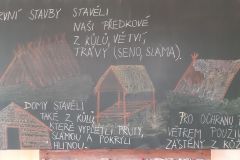 PRVNÍ STAVBY STAVĚLI
NAŠI PŘEDKOVÉ
Z KŮLŮ, VĚTVÍ,
TRÁVY (SENO, SLÁMA).
DOMY STAVĚLI
TAKÉ Z KŮLŮ,
KTERÉ VYPLETLI PRUTY,
SLÁMOU A POKRYLI
HLÍNOU.
PRO OCHRANU
VĚTREM POUŽI
ZÁSTĚNY Z KŮŽ